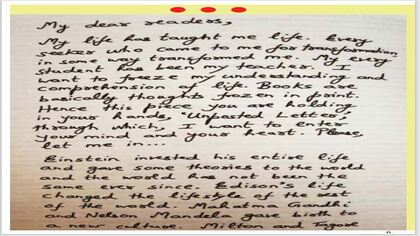 My dear readers,
My life has taught me life. Every
seeker who came to me for transformation
in some way transformed me. My every
student has been my teacher. I
want to freeze my understanding and
comprehension of life. Books are
basically thoughts frozen in print.
Hence this piece you are holding
in your hands, 'Unposted Letter',
through which, I want to enter
your mind and your heart. Please,
let me in...
Einstein invested his entire life
and gave some theories to the world
and the world has not been the
same ever since. Edison's life
changed the lifestyle of the rest
of the world. Mahatma Gandhi
and Nelson Mandela gave birth to
a new culture. Milton and Tagore